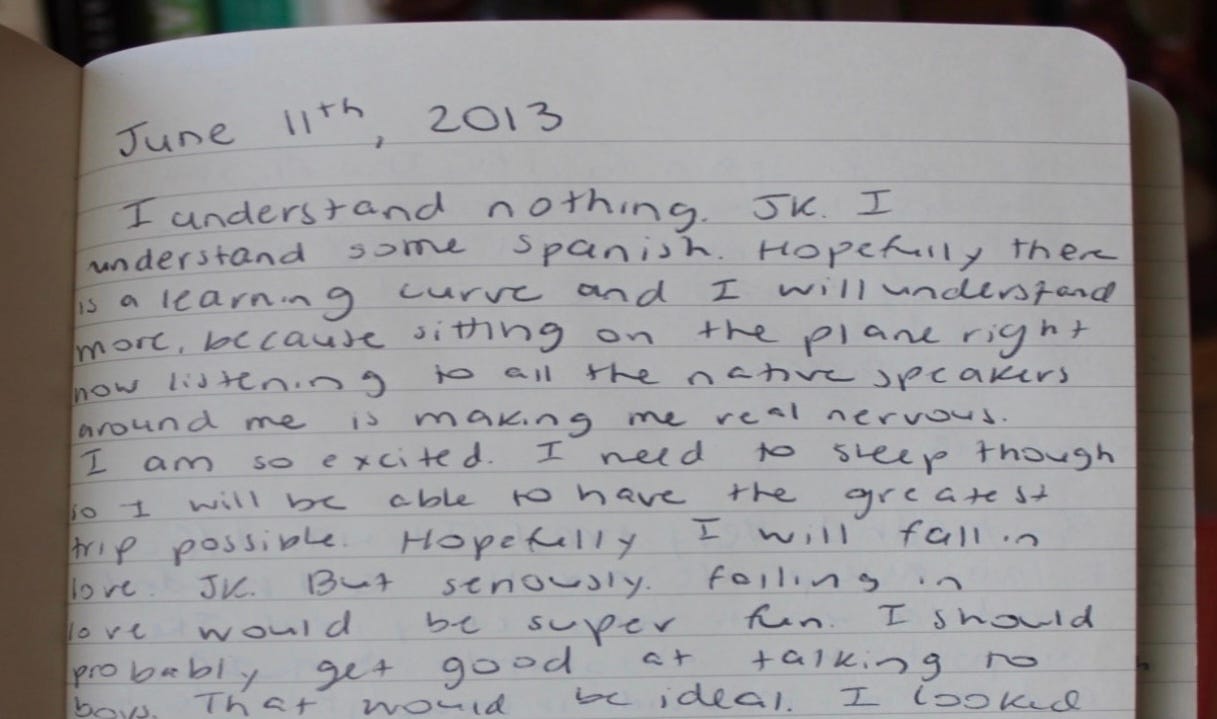 June 11th, 2013
I understand nothing. JK. I
understand some Spanish. Hopefully there
is a learning curve and I will understand
more, because sitting on the plane right
now listening to all the native speakers
around me is making me real nervous.
I am so excited. I need to sleep though
so I will be able to have the greatest
trip possible. Hopefully I will fall in
love. JK. But seriously. Falling in
love would be super fun. I should
probably get good at talking to
boys. That would be ideal. I looked